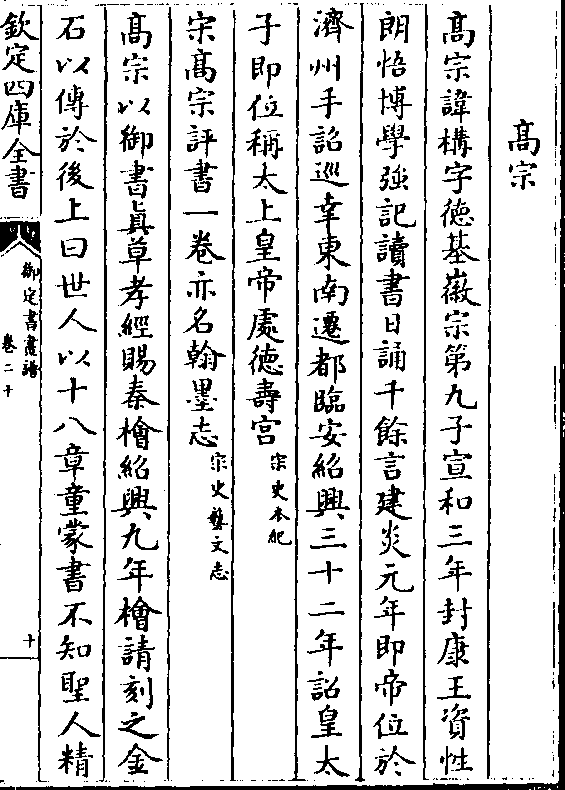 髙宗
髙宗諱構字徳基徽宗第九子宣和三年封康王資性
朗悟博學強記讀書日誦千餘言建炎元年即帝位於
濟州手詔巡幸東南遷都臨安紹興三十二年詔皇太
子即位稱太上皇帝處徳壽宫宋史本紀
宋髙宗評書一卷亦名翰墨志宋史藝文志
髙宗以御書眞草孝經賜秦檜紹興九年檜請刻之金
石以傳於後上曰世人以十八章童蒙書不知聖人精
欽定四庫全書
御定書畫譜
卷二十
十